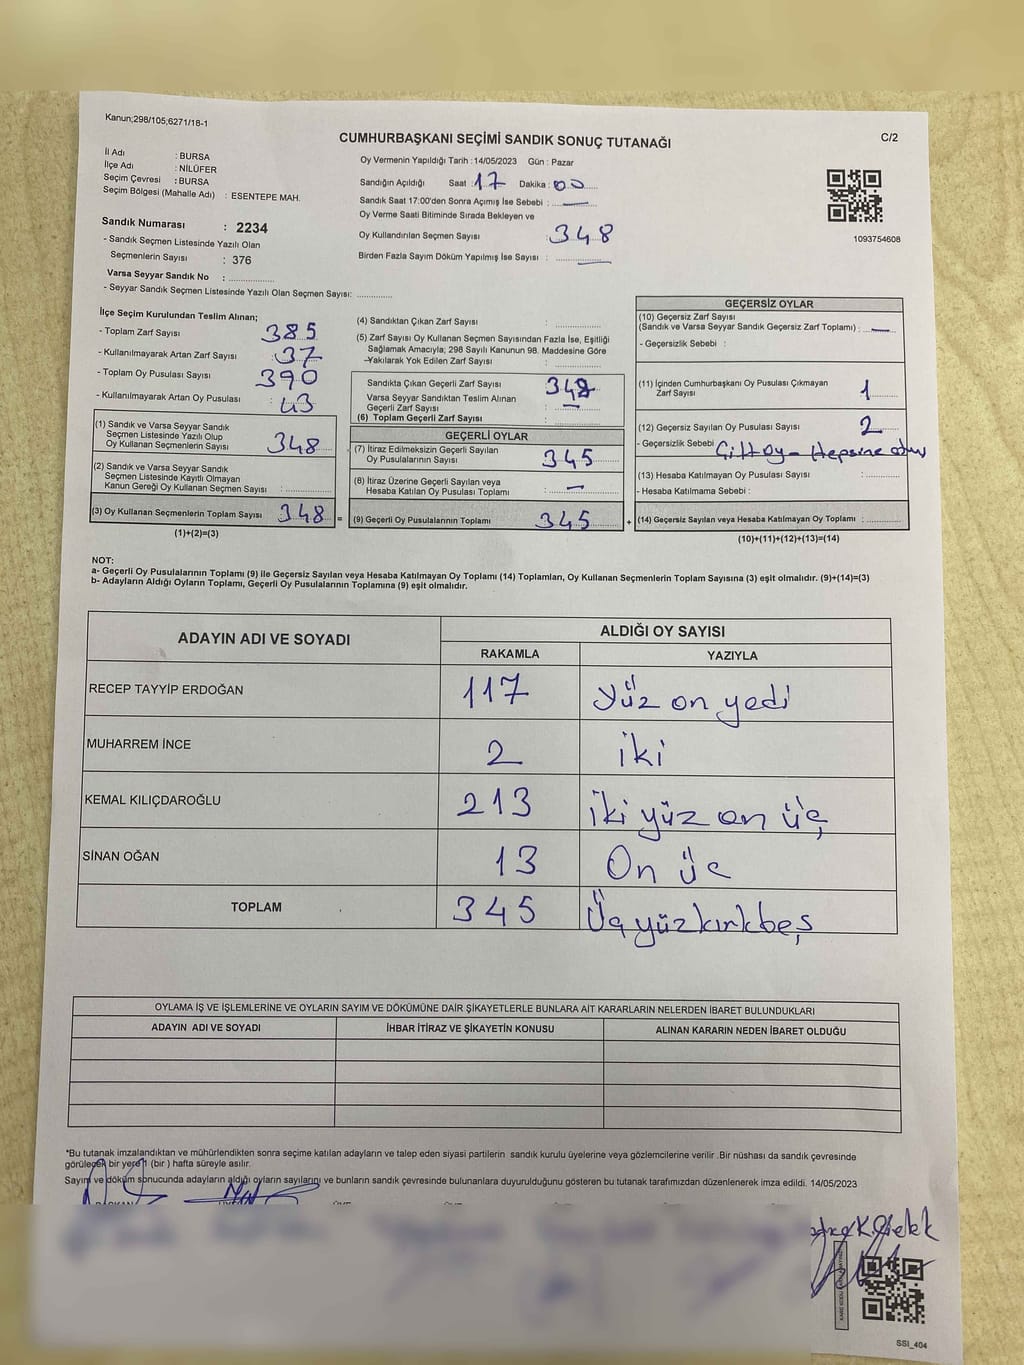 Kanun;298/105;6271/18-1
C/2
CUMHURBAŞKANI SEÇİMİ SANDIK SONUÇ TUTANAĞI
İl Adı : BURSA
İlçe Adı : NİLÜFER
Seçim Çevresi : BURSA
Seçim Bölgesi (Mahalle Adı) : ESENTEPE MAH.
Sandık Numarası : 2234
- Sandık Seçmen Listesinde Yazılı Olan
Seçmenlerin Sayısı : 376
Varsa Seyyar Sandık No : ................
- Seyyar Sandık Seçmen Listesinde Yazılı Olan Seçmen Sayısı: ............
Oy Vermenin Yapıldığı Tarih :14/05/2023 Gün : Pazar
Sandığın Açıldığı Saat :17 Dakika : 00
Sandık Saat 17:00'den Sonra Açımış İse Sebebi : —
Oy Verme Saati Bitiminde Sırada Bekleyen ve
Oy Kullandırılan Seçmen Sayısı : 348
Birden Fazla Sayım Döküm Yapılmış İse Sayısı : —
1093754608
İlçe Seçim Kurulundan Teslim Alınan;
- Toplam Zarf Sayısı : 385
- Kullanılmayarak Artan Zarf Sayısı : 37
- Toplam Oy Pusulası Sayısı : 390
- Kullanılmayarak Artan Oy Pusulası : 43
(1) Sandık ve Varsa Seyyar Sandık
Seçmen Listesinde Yazılı Olup
Oy Kullanan Seçmenlerin Sayısı : 348
(2) Sandık ve Varsa Seyyar Sandık
Seçmen Listesinde Kayıtlı Olmayan
Kanun Gereği Oy Kullanan Seçmen Sayısı : ............
(3) Oy Kullanan Seçmenlerin Toplam Sayısı : 348 =
(1)+(2)=(3)
(4) Sandıktan Çıkan Zarf Sayısı : ............
(5) Zarf Sayısı Oy Kullanan Seçmen Sayısından Fazla İse, Eşitliği
Sağlamak Amacıyla; 298 Sayılı Kanunun 98. Maddesine Göre
Yakılarak Yok Edilen Zarf Sayısı : ............
Sandıkta Çıkan Geçerli Zarf Sayısı : 348
Varsa Seyyar Sandıktan Teslim Alınan
Geçerli Zarf Sayısı : —
(6) Toplam Geçerli Zarf Sayısı : ............
GEÇERLİ OYLAR
(7) İtiraz Edilmeksizin Geçerli Sayılan
Oy Pusulalarının Sayısı : 345
(8) İtiraz Üzerine Geçerli Sayılan veya
Hesaba Katılan Oy Pusulası Toplamı : —
(9) Geçerli Oy Pusulalarının Toplamı : 345 +
GEÇERSİZ OYLAR
(10) Geçersiz Zarf Sayısı
(Sandık ve Varsa Seyyar Sandık Geçersiz Zarf Toplamı) : —
- Geçersizlik Sebebi :
(11) İçinden Cumhurbaşkanı Oy Pusulası Çıkmayan
Zarf Sayısı : 1
(12) Geçersiz Sayılan Oy Pusulası Sayısı : 2
- Geçersizlik Sebebi : Çift oy - Hepsine
(13) Hesaba Katılmayan Oy Pusulası Sayısı : ............
- Hesaba Katılmama Sebebi :
(14) Geçersiz Sayılan veya Hesaba Katılmayan Oy Toplamı : ............
(10)+(11)+(12)+(13)=(14)
NOT:
a- Geçerli Oy Pusulalarının Toplamı (9) ile Geçersiz Sayılan veya Hesaba Katılmayan Oy Toplamı (14) Toplamları, Oy Kullanan Seçmenlerin Toplam Sayısına (3) eşit olmalıdır. (9)+(14)=(3)
b- Adayların Aldığı Oyların Toplamı, Geçerli Oy Pusulalarının Toplamına (9) eşit olmalıdır.
ADAYIN ADI VE SOYADI
ALDIĞI OY SAYISI
RAKAMLA YAZIYLA
RECEP TAYYİP ERDOĞAN 117 Yüz on yedi
MUHARREM İNCE 2 iki
KEMAL KILIÇDAROĞLU 213 iki yüz on üç
SİNAN OĞAN 13 On üç
TOPLAM 345 Üç yüzkırkbeş
OYLAMA İŞ VE İŞLEMLERİNE VE OYLARIN SAYIM VE DÖKÜMÜNE DAİR ŞİKAYETLERLE BUNLARA AİT KARARLARIN NELERDEN İBARET BULUNDUKLARI
ADAYIN ADI VE SOYADI İHBAR İTİRAZ VE ŞİKAYETİN KONUSU ALINAN KARARIN NEDEN İBARET OLDUĞU
*Bu tutanak imzalandıktan ve mühürlendikten sonra seçime katılan adayların ve talep eden siyasi partilerin sandık kurulu üyelerine veya gözlemcilerine verilir .Bir nüshası da sandık çevresinde
görülecek bir yere 1 (bir ) hafta süreyle asılır.
Sayım ve döküm sonucunda adayların aldığı oyların sayılarını ve bunların sandık çevresinde bulunanlara duyurulduğunu gösteren bu tutanak tarafımızdan düzenlenerek imza edildi. 14/05/2023
SSI_404